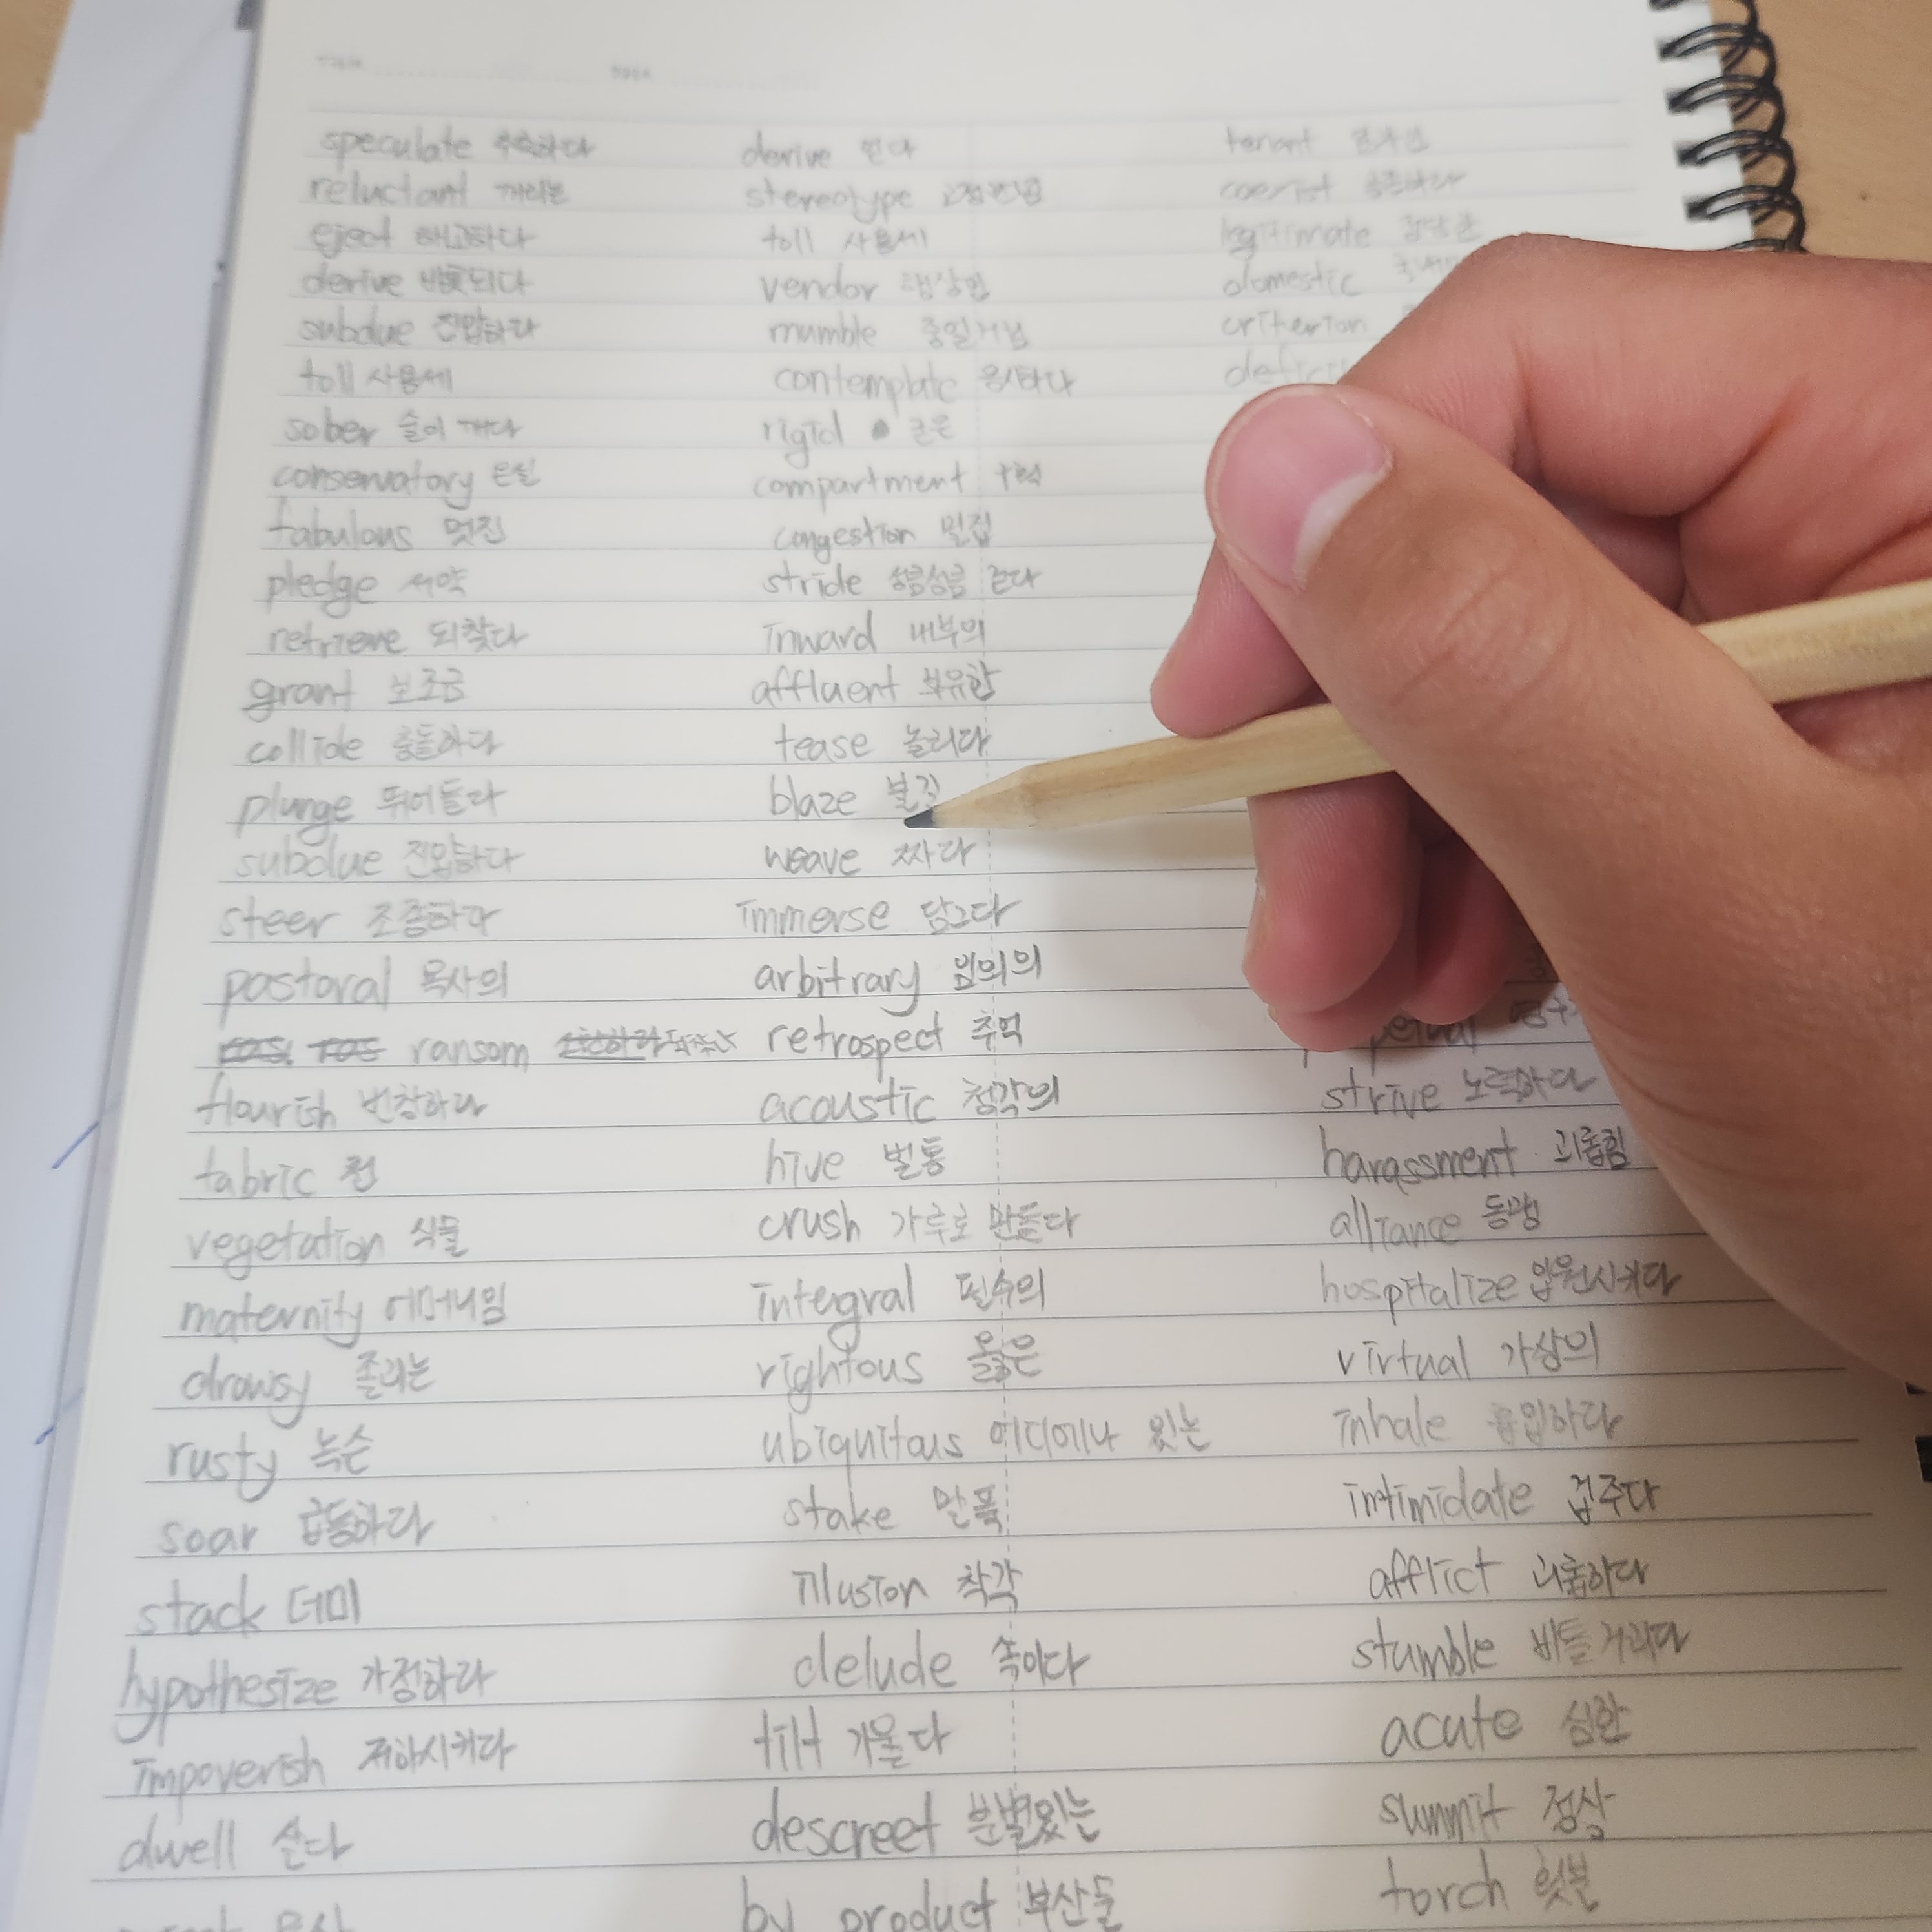 speculate 추측하다
reluctant 꺼리는
eject 해고하다
derive 비롯되다
subdue 진압하다
toll 사용세
sober 술이 깨다
conservatory 온실
fabulous 멋진
pledge 서약
retrieve 되찾다
grant 보조금
collide 충돌하다
plunge 뛰어들다
subdue 진압하다
steer 조종하다
pastoral 목사의
ransom
flourish 번창하다
fabric 천
vegetation 식물
maternity 어머니임
drowsy 졸리는
rusty 녹슨
soar 급등하다
stack 더미
hypothesize 가정하다
impoverish 저하시키다
dwell 산다
derive 얻다
stereotype 고정관념
toll 사용세
vendor 행상인
mumble 중얼거님
contemplate 응시하다
rigid 굳은
compartment 구획
congestion 밀집
stride 성큼성큼 걷다
inward 내부의
affluent 부유한
tease 놀리다
blaze 불길
weave 짜다
immerse 담그다
arbitrary 임의의
retrospect 추억
acoustic 청각의
hive 벌통
crush 가루로 만들다
integral 필수의
rightous 옳은
ubiquitous 어디에나 있는
stake 말뚝
illusion 착각
delude 속이다
tilt 기울다
descreet 분별있는
by product 부산물
tenant 임차인
coexist 공존하다
legitimate 정당한
domestic
criterion
strive 노력하다
harassment 괴롭힘
alliance 동맹
hospitalize 입원시키다
virtual 가상의
inhale 흡입하다
intimidate 겁주다
afflict 괴롭히다
stumble 비틀거리다
acute 심한
summit 정상
torch 횃불